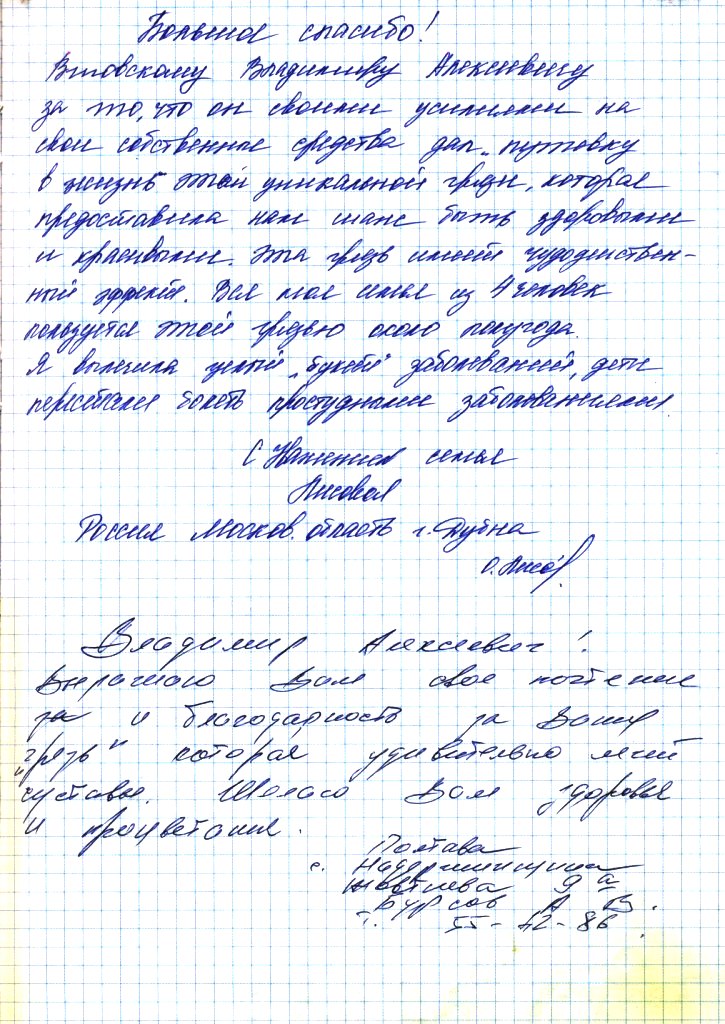 Большое спасибо!
Витовскому Владимиру Алексеевичу
за то, что он своими усилиями на
свои собственные средства дал „путовку
в жизнь этой уникальной грязи, которая
предоставила нам шанс быть здоровыми
и красивыми. Эта грязь имеет чудодействен-
ный эффект. Вся моя семья из 4 человек
пользуется этой грязью около полугода.
Я вылечила целый „букет" заболеваний, дети
перестали болеть простудными заболеваниями.
С Уважением семья
Лисовая
Россия Москов. область г. Дубна
О. Лисов
Владимир Алексеевич!
Выражаю Вам свое почтение
за и благодарность за Вашу
"грязь" которая удивительно лечит
суставы. Желаю Вам здоровья
и процветания.
Полтава
с.
9 а
Бурсов А В.
т. 55-42-86